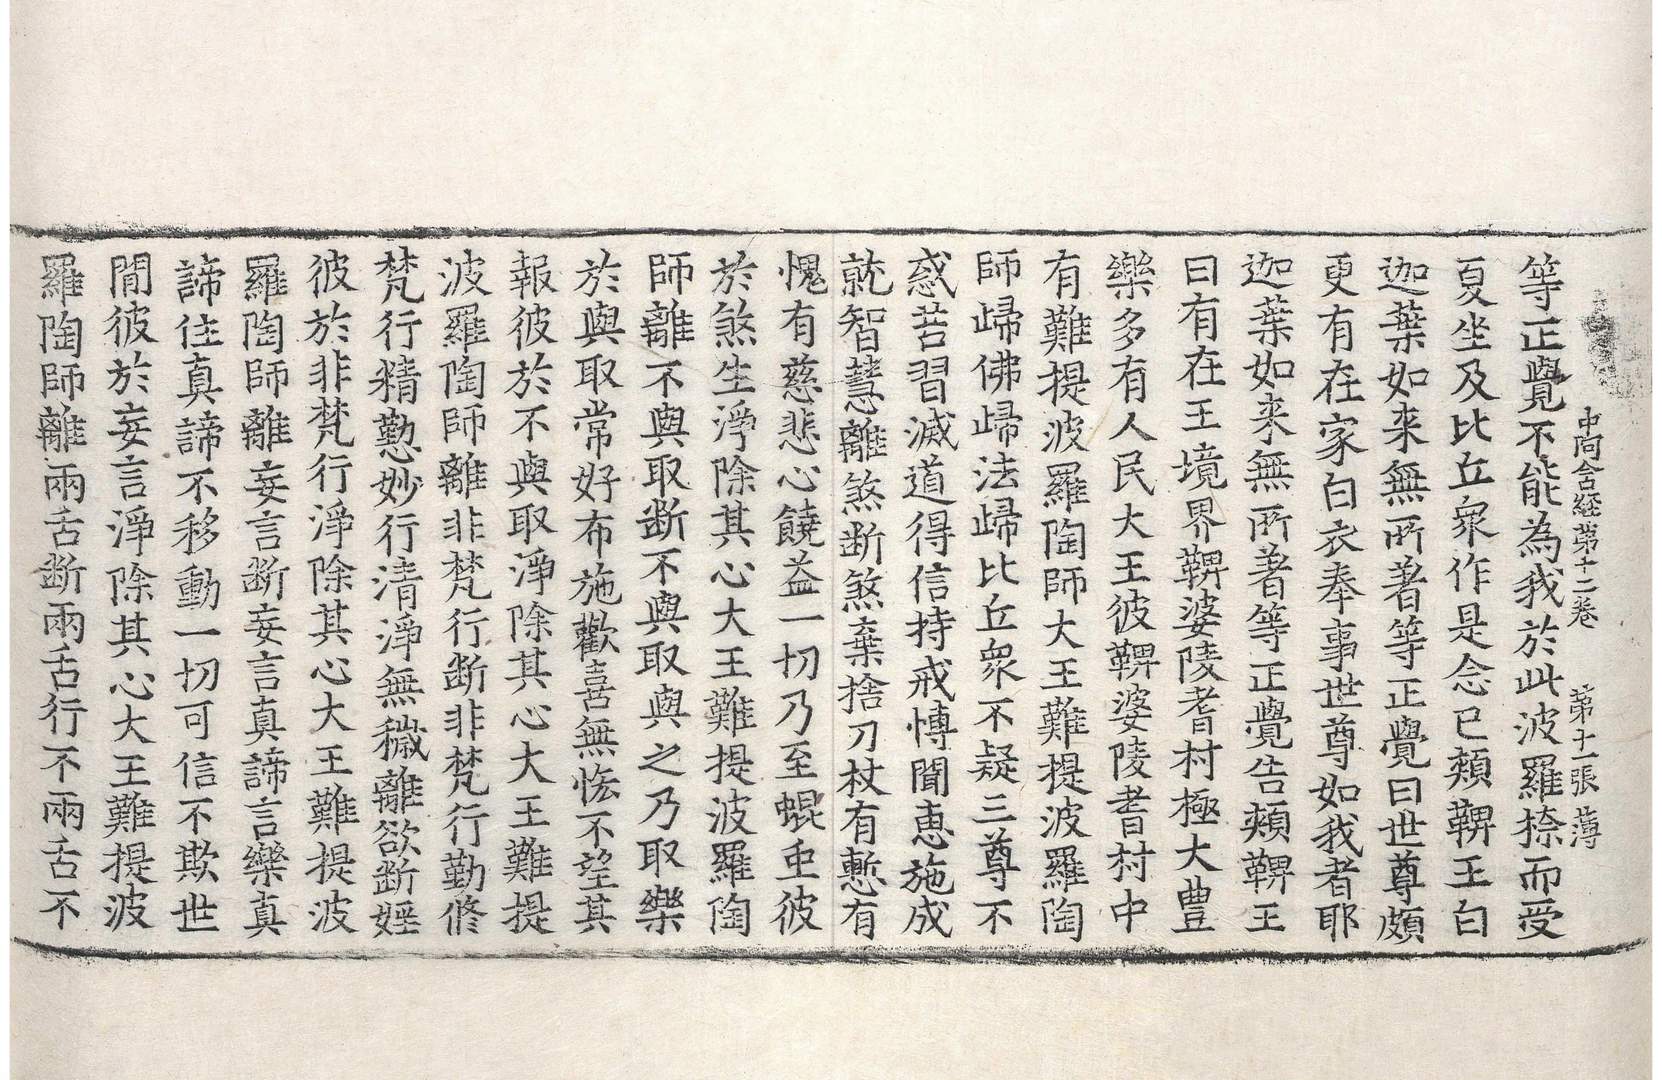 中阿含經第十二卷　第十一張　薄
等正覺不能為我於此波羅㮈而受
夏坐及比丘衆作是念已頰鞞王白
迦葉如来無所著等正覺曰世尊頗
更有在家白衣奉事世尊如我者耶
迦葉如来無所著等正覺告頰鞞王
曰有在王境界鞞婆陵耆村極大豊
樂多有人民大王彼鞞婆陵耆村中
有難提波羅陶師大王難提波羅陶
師歸佛歸法歸比丘衆不疑三尊不
惑苦習滅道得信持戒愽聞恵施成
就智慧離煞断煞棄捨刀杖有慙有
愧有慈悲心饒益一切乃至蜫虫彼
於煞生淨除其心大王難提波羅陶
師離不與取断不與取與之乃取樂
於與取常好布施歡喜無悋不望其
報彼於不與取淨除其心大王難提
波羅陶師離非梵行断非梵行勤修
梵行精懃妙行清淨無穢離欲断婬
彼於非梵行淨除其心大王難提波
羅陶師離妄言断妄言真諦言樂真
諦住真諦不移動一切可信不欺世
間彼於妄言淨除其心大王難提波
羅陶師離兩舌断兩舌行不兩舌不